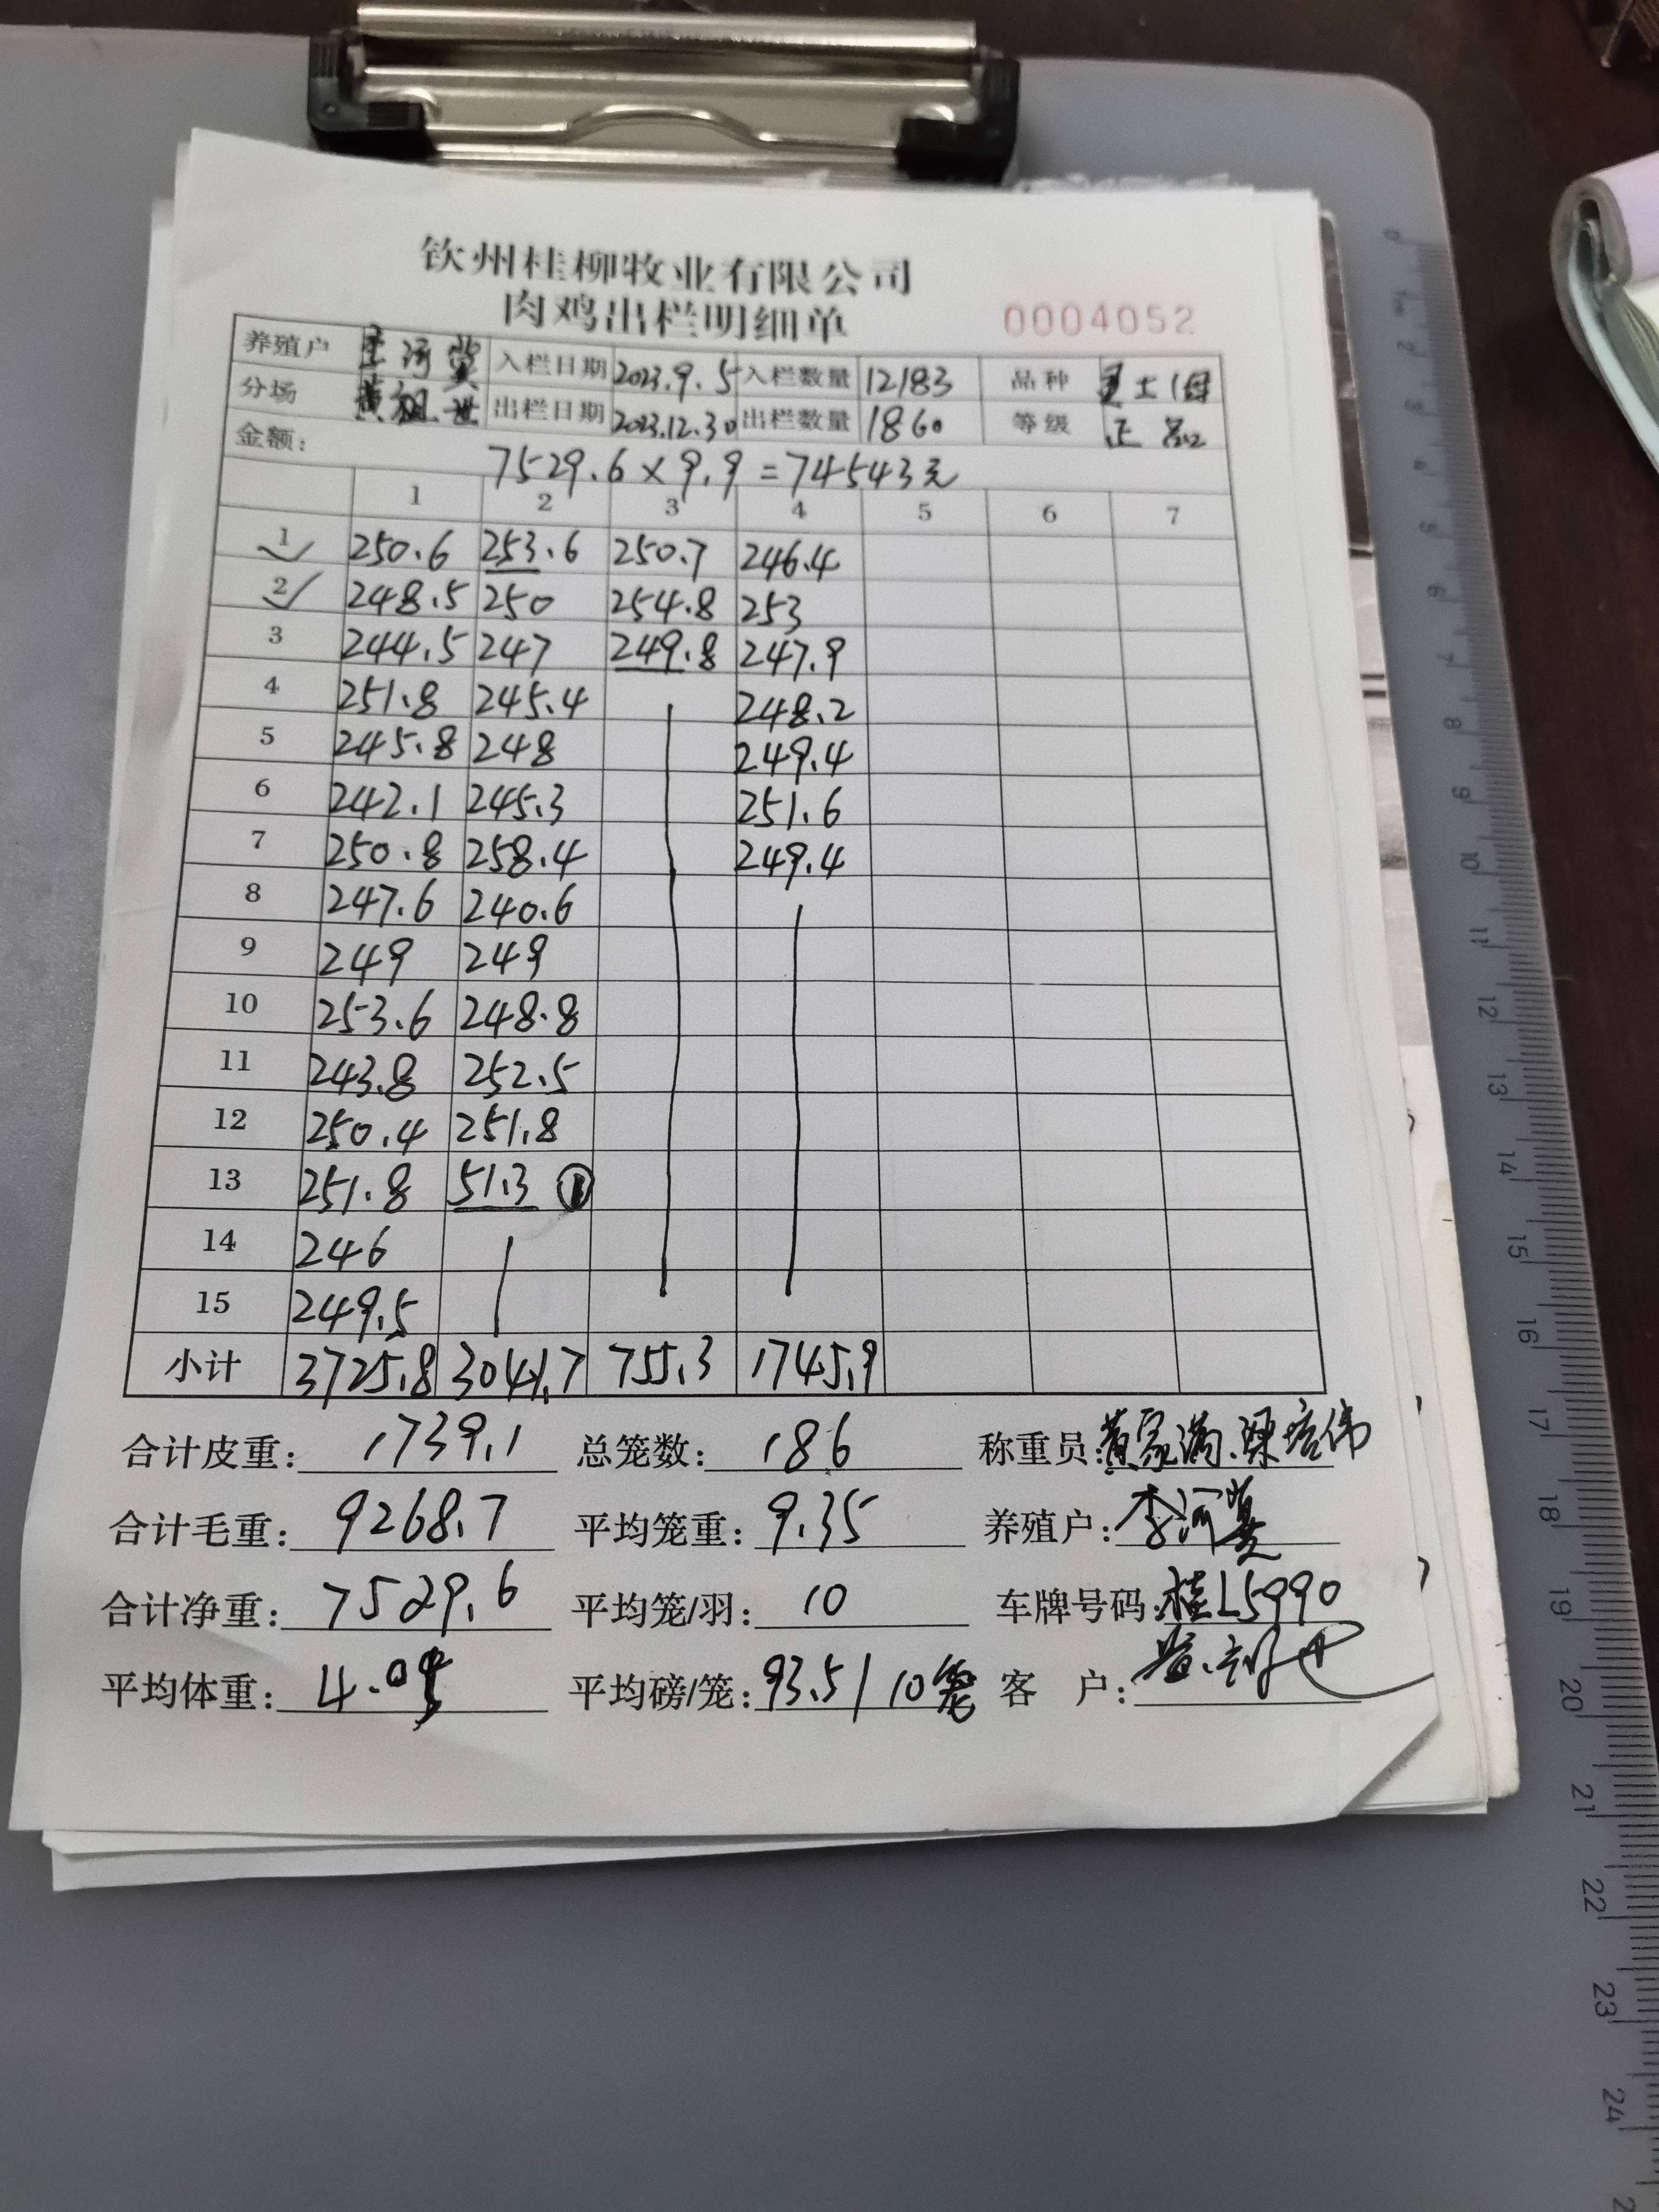 钦州桂柳牧业有限公司
肉鸡出栏明细单
0004052
养殖户 入栏日期 2023.9.5 入栏数量 12183 品种 土
分场 黄祖 出栏日期 2023.12.30 出栏数量 1860 等级 正品
金额: 7529.6×9.9=74543元
1 2 3 4 5 6 7
1 250.6 253.6 250.7 246.4
2 248.5 250 254.8 253
3 244.5 247 249.8 247.9
4 251.8 245.4 248.2
5 245.8 248 249.4
6 242.1 245.3 251.6
7 250.8 258.4 249.4
8 247.6 240.6
9 249 249
10 253.6 248.8
11 243.8 252.5
12 250.4 251.8
13 251.8 51.3 ①
14 246
15 249.5
小计 3725.8 3041.7 755.3 1745.9
合计皮重: 1739.1 总笼数: 186 称重员: 黄家满.梁培伟
合计毛重: 9268.7 平均笼重: 9.35 养殖户: 李河
合计净重: 7529.6 平均笼/羽: 10 车牌号码: 桂L5990
平均体重: 4.05 平均磅/笼: 93.5/10笼 客 户:
0 1cm 2 3 4 5 6 7 8 9 10 11 12 13 14 15 16 17 18 19 20 21 22 23 24